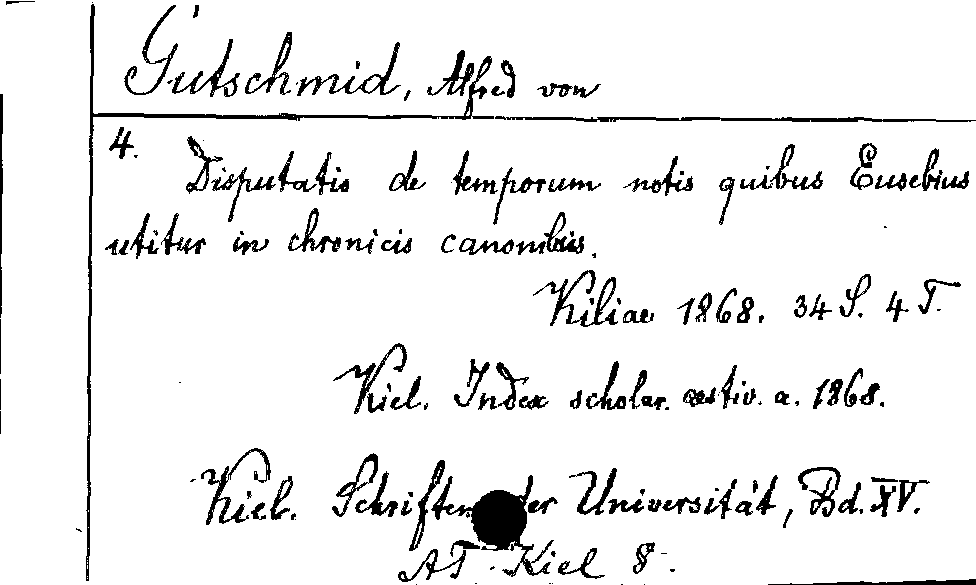 Gutschmid, Alfred von
4.
Disputatio de temporum notis quibus Eusebius
utitur in chronicis canonibus.
Kiliae 1868. 34 S. 4 T.
Kiel. Index scholar. aestiv. a. 1868.
Kiel. Schriften der Universität, Bd. XV.
AT. Kiel 8.